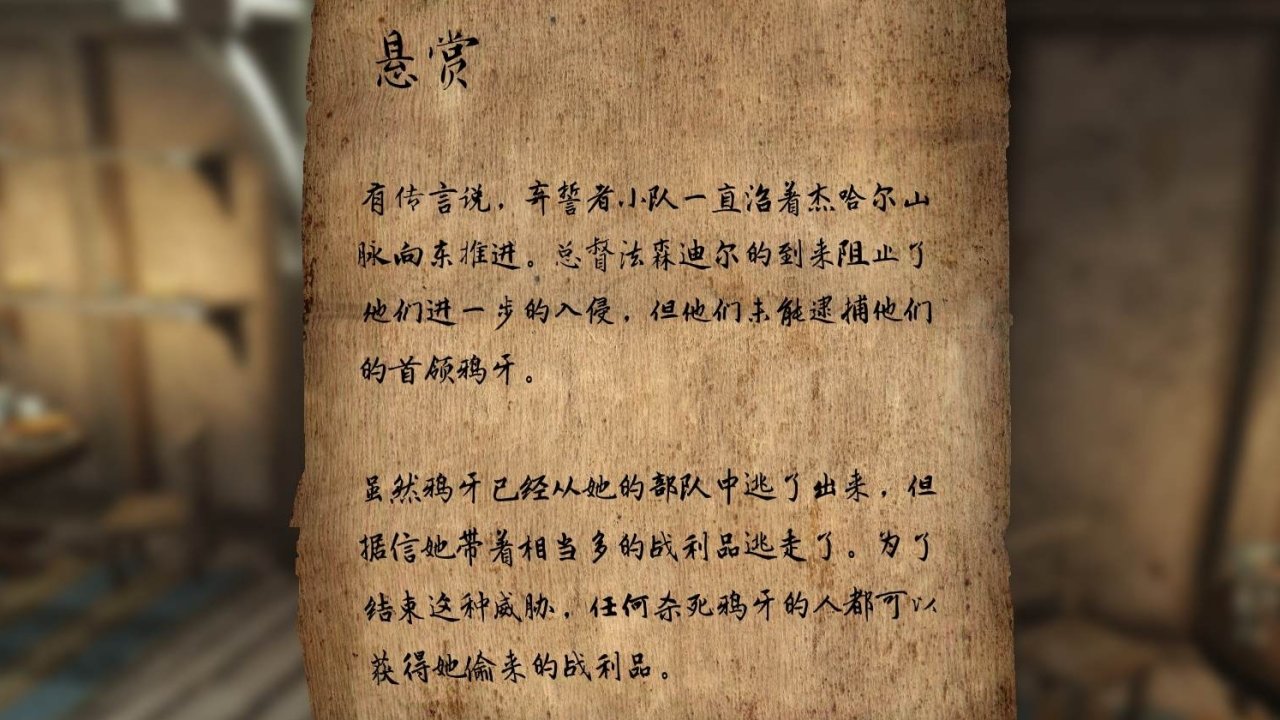 悬赏
有传言说，弃誓者小队一直沿着杰哈尔山
脉向东推进。总督法森迪尔的到来阻止了
他们进一步的入侵，但他们未能逮捕他们
的首领鸦牙。
虽然鸦牙已经从她的部队中逃了出来，但
据信她带着相当多的战利品逃走了。为了
结束这种威胁，任何杀死鸦牙的人都可以
获得她偷来的战利品。